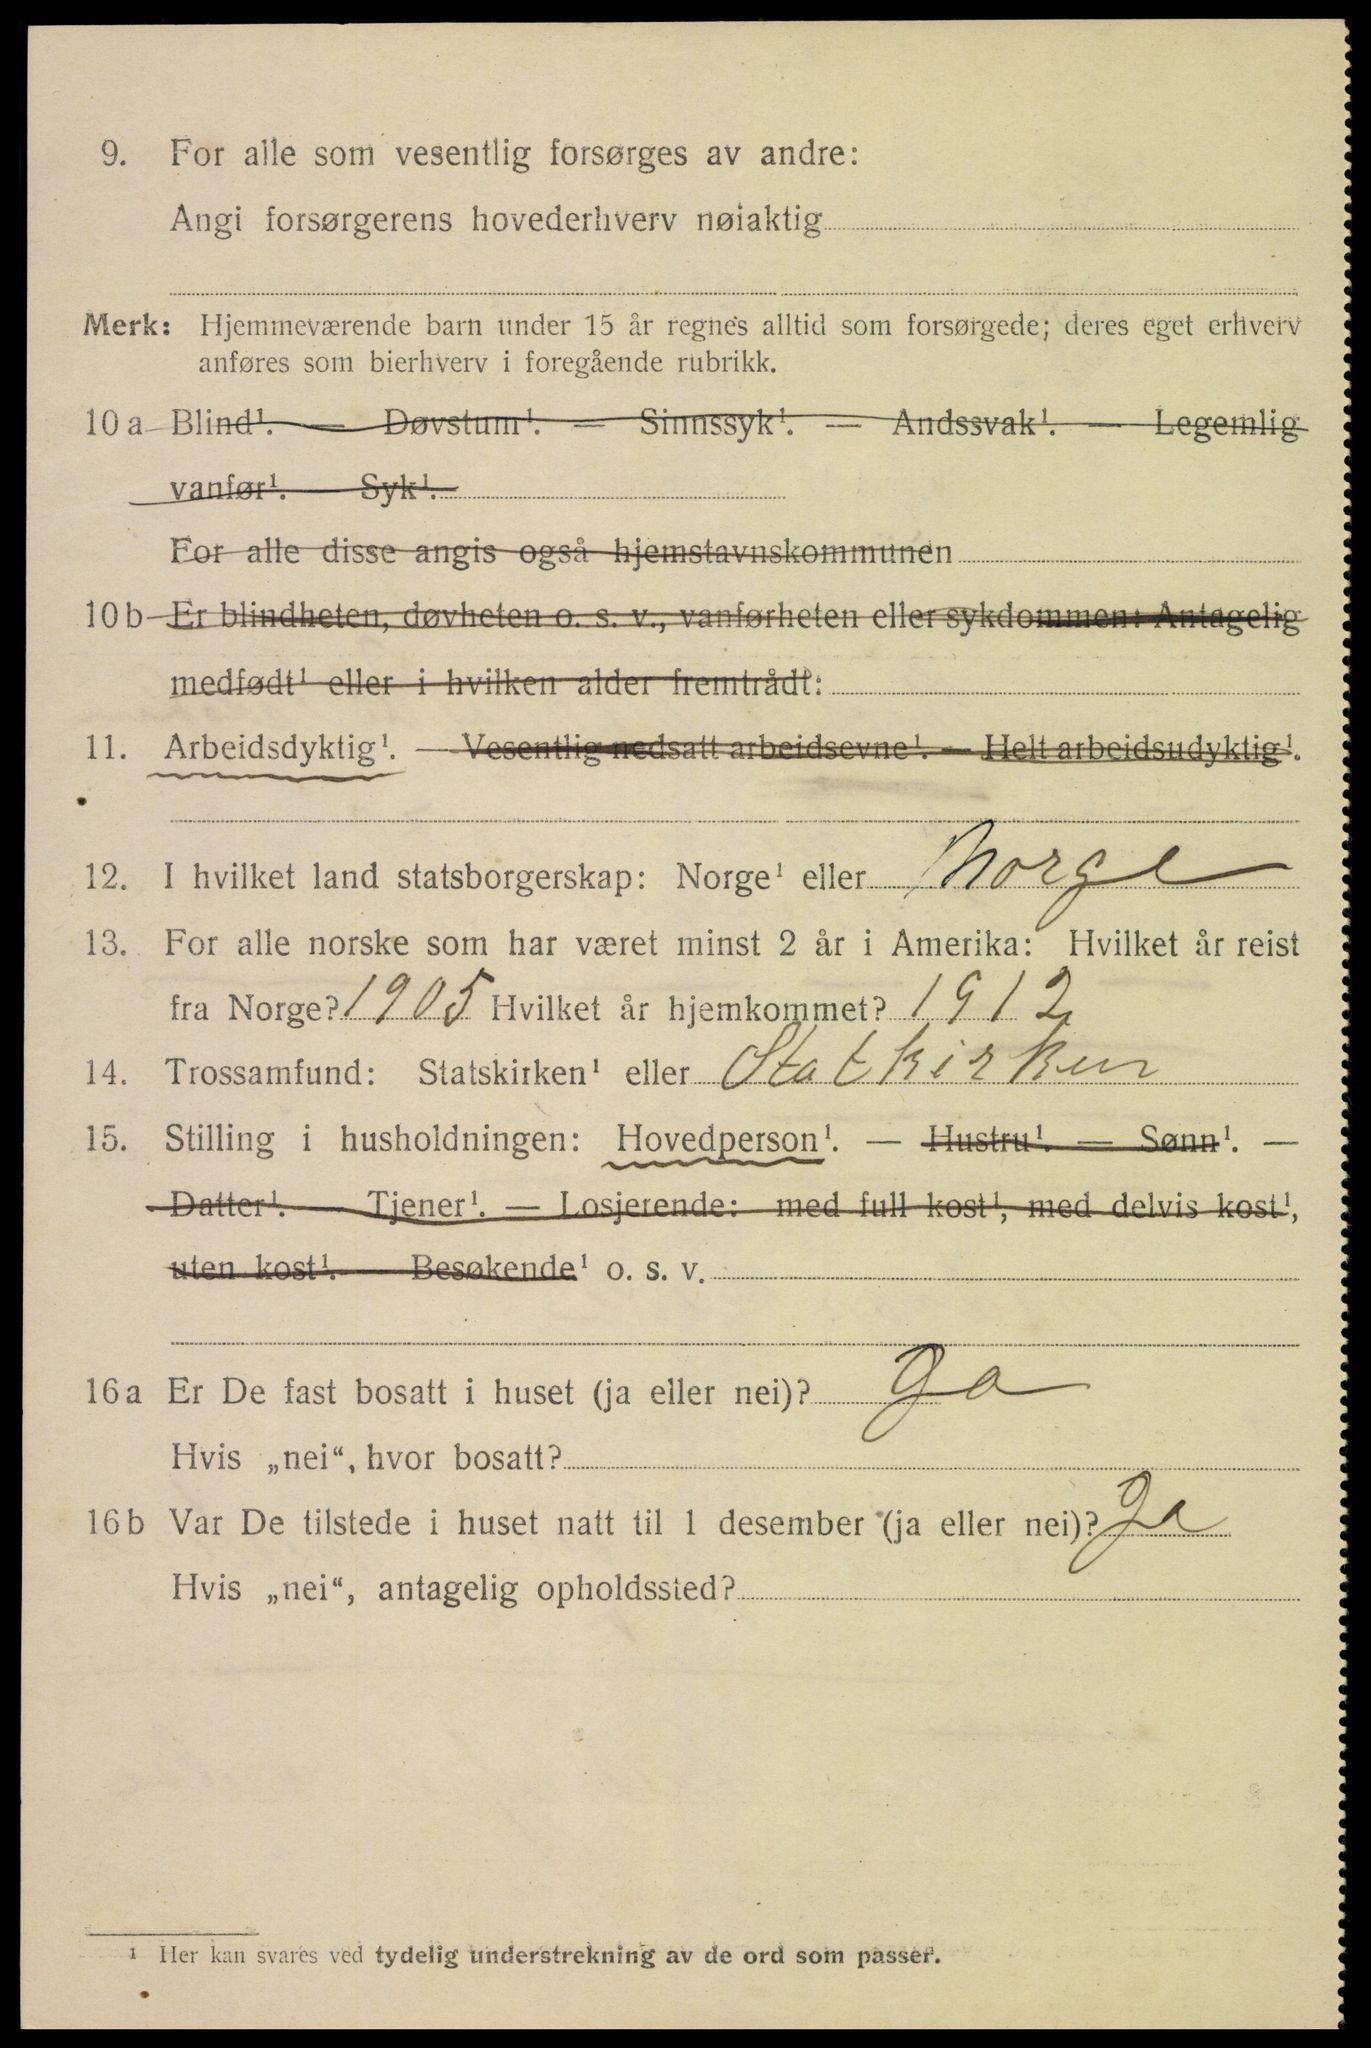 9. For alle som vesentlig forsørges av andre:
Angi forsørgerens hovederhverv nøiaktig
Merk: Hjemmeværende barn under 15 år regnes alltid som forsørgede; deres eget erhverv
anføres som bierhverv i foregående rubrikk.
10 a Blind¹. — Døvstum¹. — Sinnssyk¹. — Andssvak¹. — Legemlig
vanfør¹. — Syk¹.
For alle disse angis også hjemstavnskommunen
10 b Er blindheten, døvheten o. s. v., vanførheten eller sykdommen: Antagelig
medfødt¹ eller i hvilken alder fremtrådt:
11. Arbeidsdyktig¹. — Vesentlig nedsatt arbeidsevne¹. — Helt arbeidsudyktig¹.
12. I hvilket land statsborgerskap: Norge¹ eller Norge
13. For alle norske som har været minst 2 år i Amerika: Hvilket år reist
fra Norge? 1905 Hvilket år hjemkommet? 1912
14. Trossamfund: Statskirken¹ eller Statkirken
15. Stilling i husholdningen: Hovedperson¹. — Hustru¹. — Sønn¹. —
Datter¹. — Tjener¹. — Losjerende: med full kost¹, med delvis kost¹,
uten kost¹. — Besøkende¹ o. s. v.
16 a Er De fast bosatt i huset (ja eller nei)? Ja
Hvis „nei“, hvor bosatt?
16 b Var De tilstede i huset natt til 1 desember (ja eller nei)? Ja
Hvis „nei“, antagelig opholdssted?
¹ Her kan svares ved tydelig understrekning av de ord som passer.